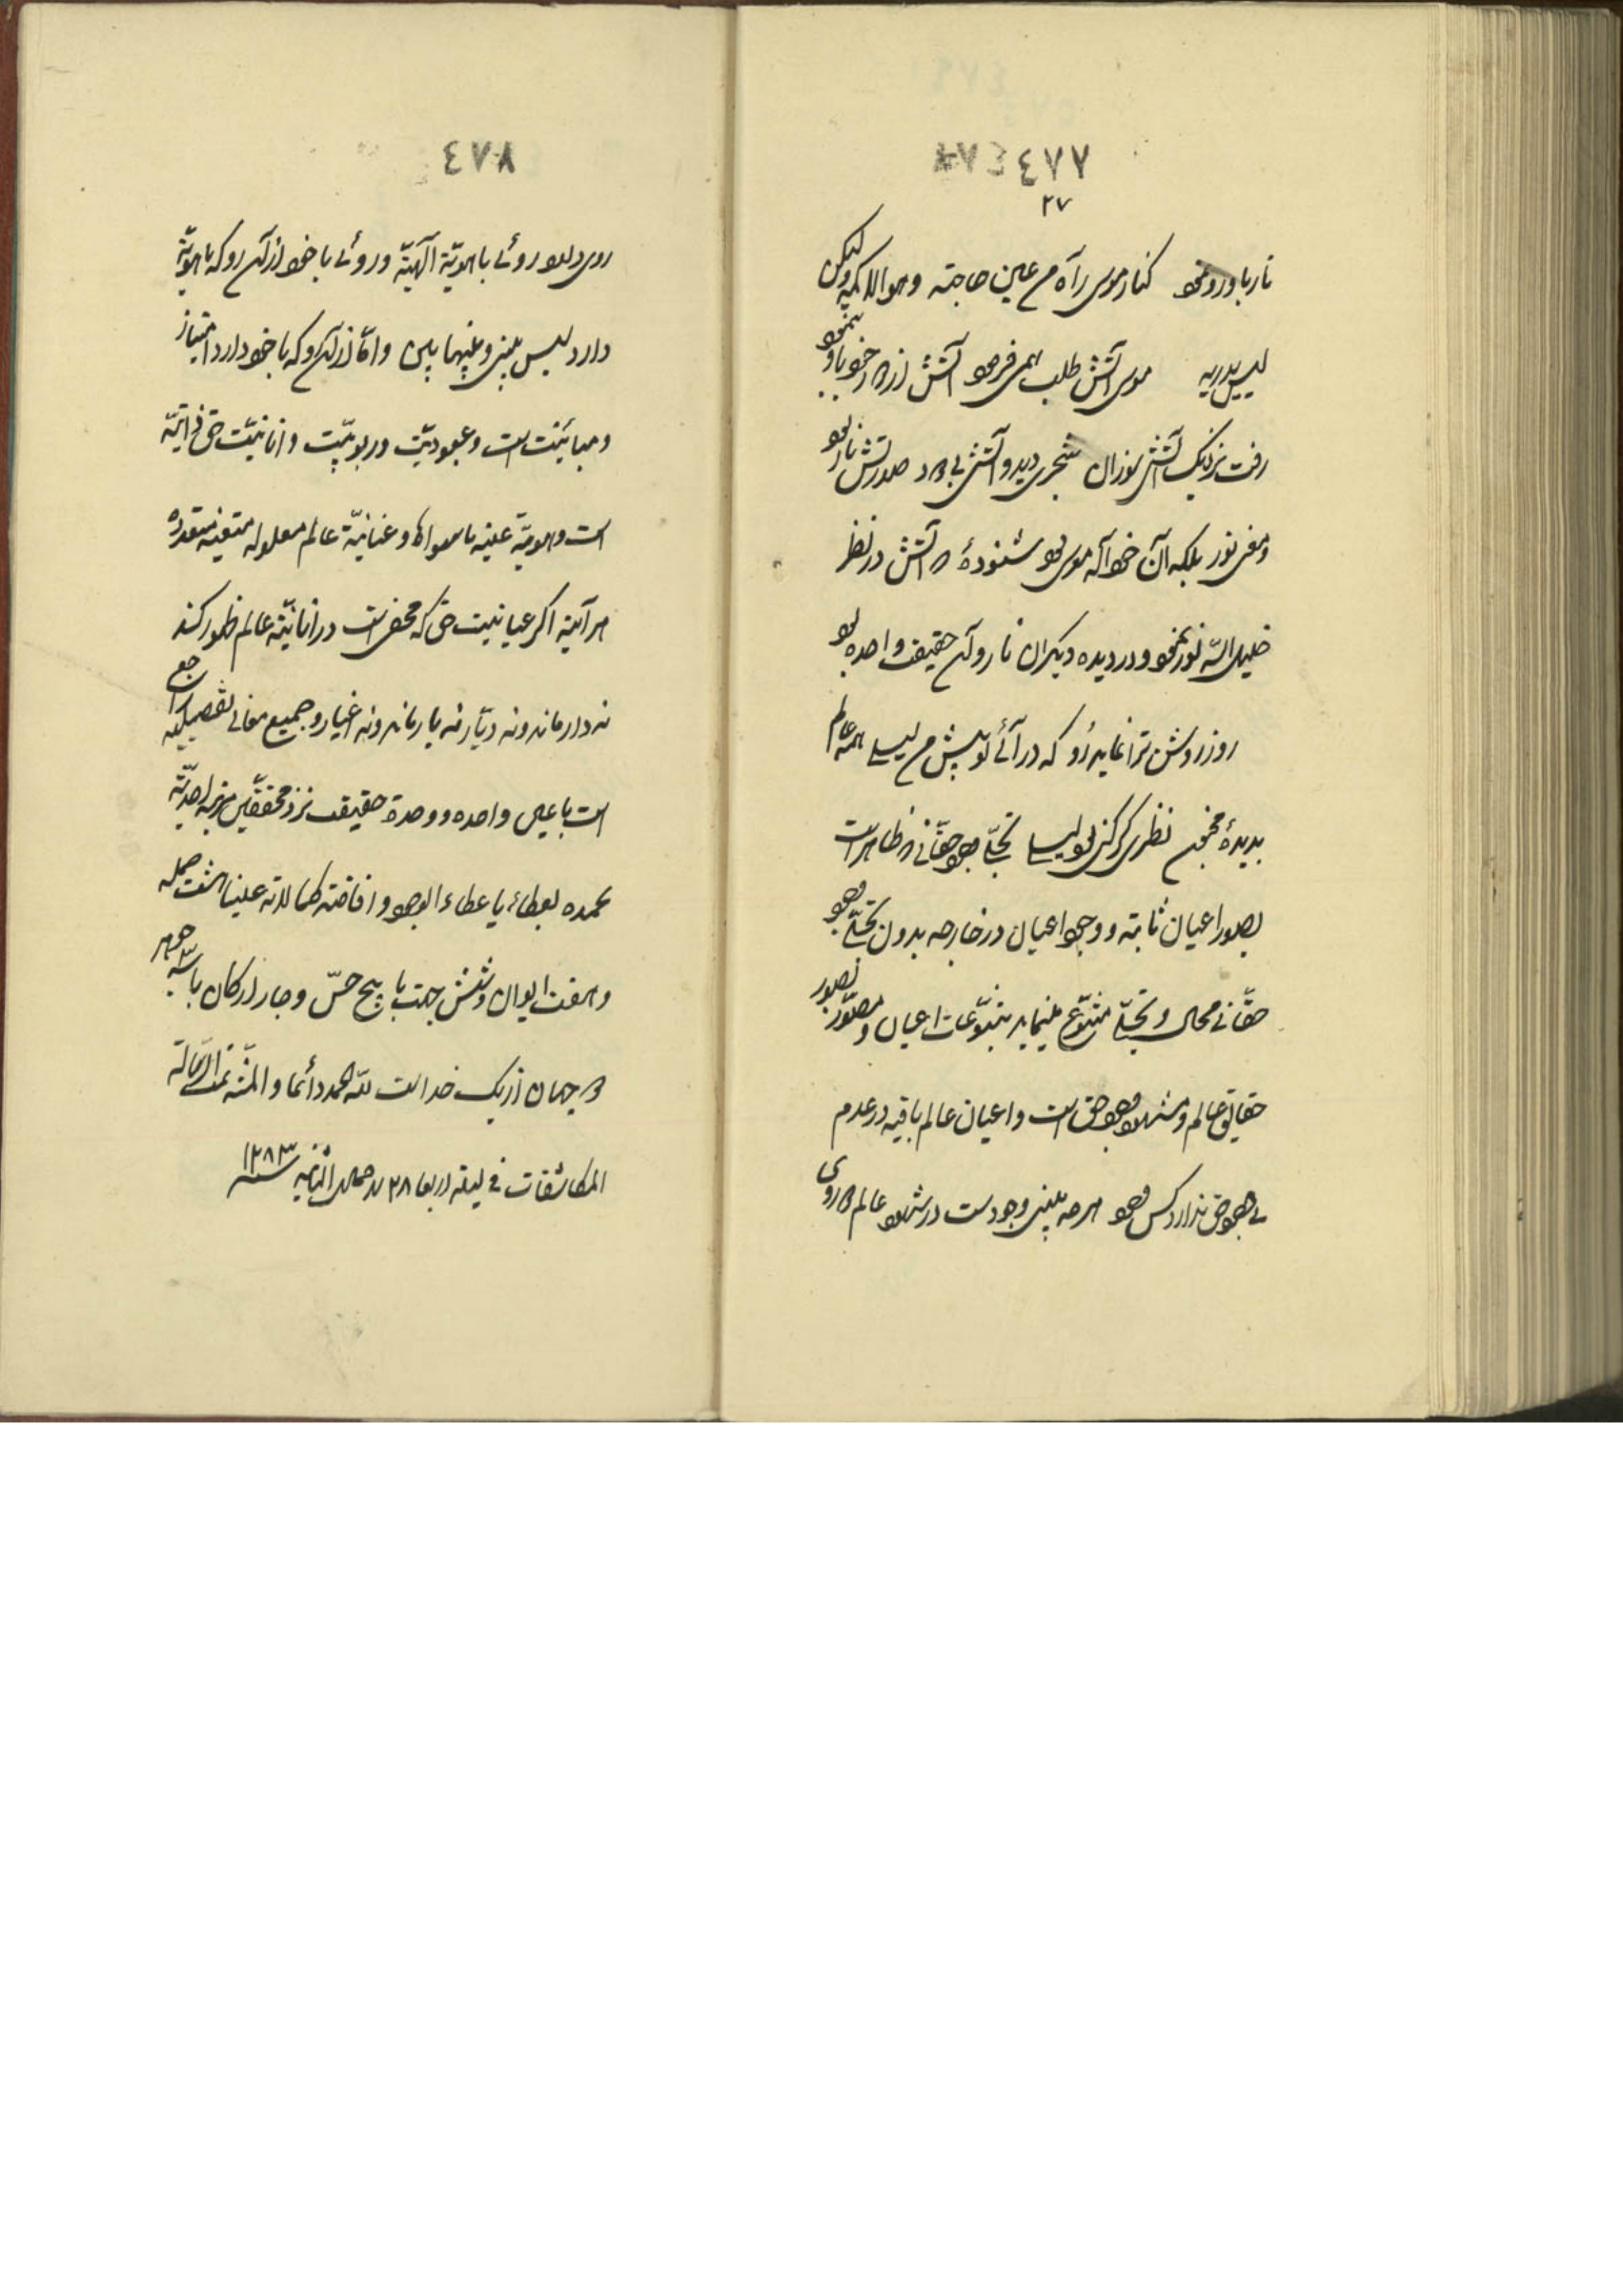 ٤٧٧
٢٧
نار باو رو نمود کنار موسی رآه من عین حاجته و هو الاله ولیکن
لیس یدریه موسی آتش طلب همی فرمود آتش از در خود باو بنمود
رفت نزدیک آتش سوزان شجری دید و آتشی بی دود صورتش نار بود
و معنی نور بلکه آن خود آله موسی بود شنوده که آتش در نظر
خلیل الله نور نمود و در دیده دیگران نار و آن حقیقت واحده بود
روز روشن ترا نماید رو که در آئی تو پیش من لیسا همه عالم
بدیدهٔ مخبون نظری کر کنی بود لیسا تجلّی وجود حقّانی ظاهر است
بصور اعیان ثابته و وجود اعیان در خارجه بدون تجلّی وجود
حقّانی محال و تجلّی متنوّع مینماید بتنوّعات اعیان و مصوّر بصور
حقایق عالم و مشهود وجود حق است و اعیان عالم باقیه در عدم
بی وجود حق ندارد کس وجود هر چه بینی وجود ست در شهود عالم را دو روی
٤٧٨
روی دارد روئی با هویّة آلهیّة و روئی با خود از آن رو که با هویّة
دارد لیس بینی و بینها بین و امّا از آن رو که با خود دارد امتیاز
و مباینت است و عبودیّت و ربوبیّت و انانیّت حق ذاتیّه
است و هویّة عینه ما سواها و عنانیّة عالم معلوله متعیّنه متعدّده
هر آینه اکر عیانیت حق که محض است در انانیّة عالم ظهور کند
نه دار ماند و نه دیّار نه یار ماند و نه اغیار و جمیع معانی تفصیلیّه راجع
است با عین واحده و وحدة حقیقت نزد محققین مرتبه احدیّة
نحمده بعطاء یا عطاء الوجود و افاضته کمالاته علینا هشت جمله
و هفت ایوان و شش جهت با پنج حسّ و چار ارکان با سه جوهر
دو جهان از یک خدا است لله الحمد دائما و المنّه تمت الرّسالة
المکاشفات فی لیلة اربعا ٢٨ من جمادی الثانیه سنه ١٢٨٣